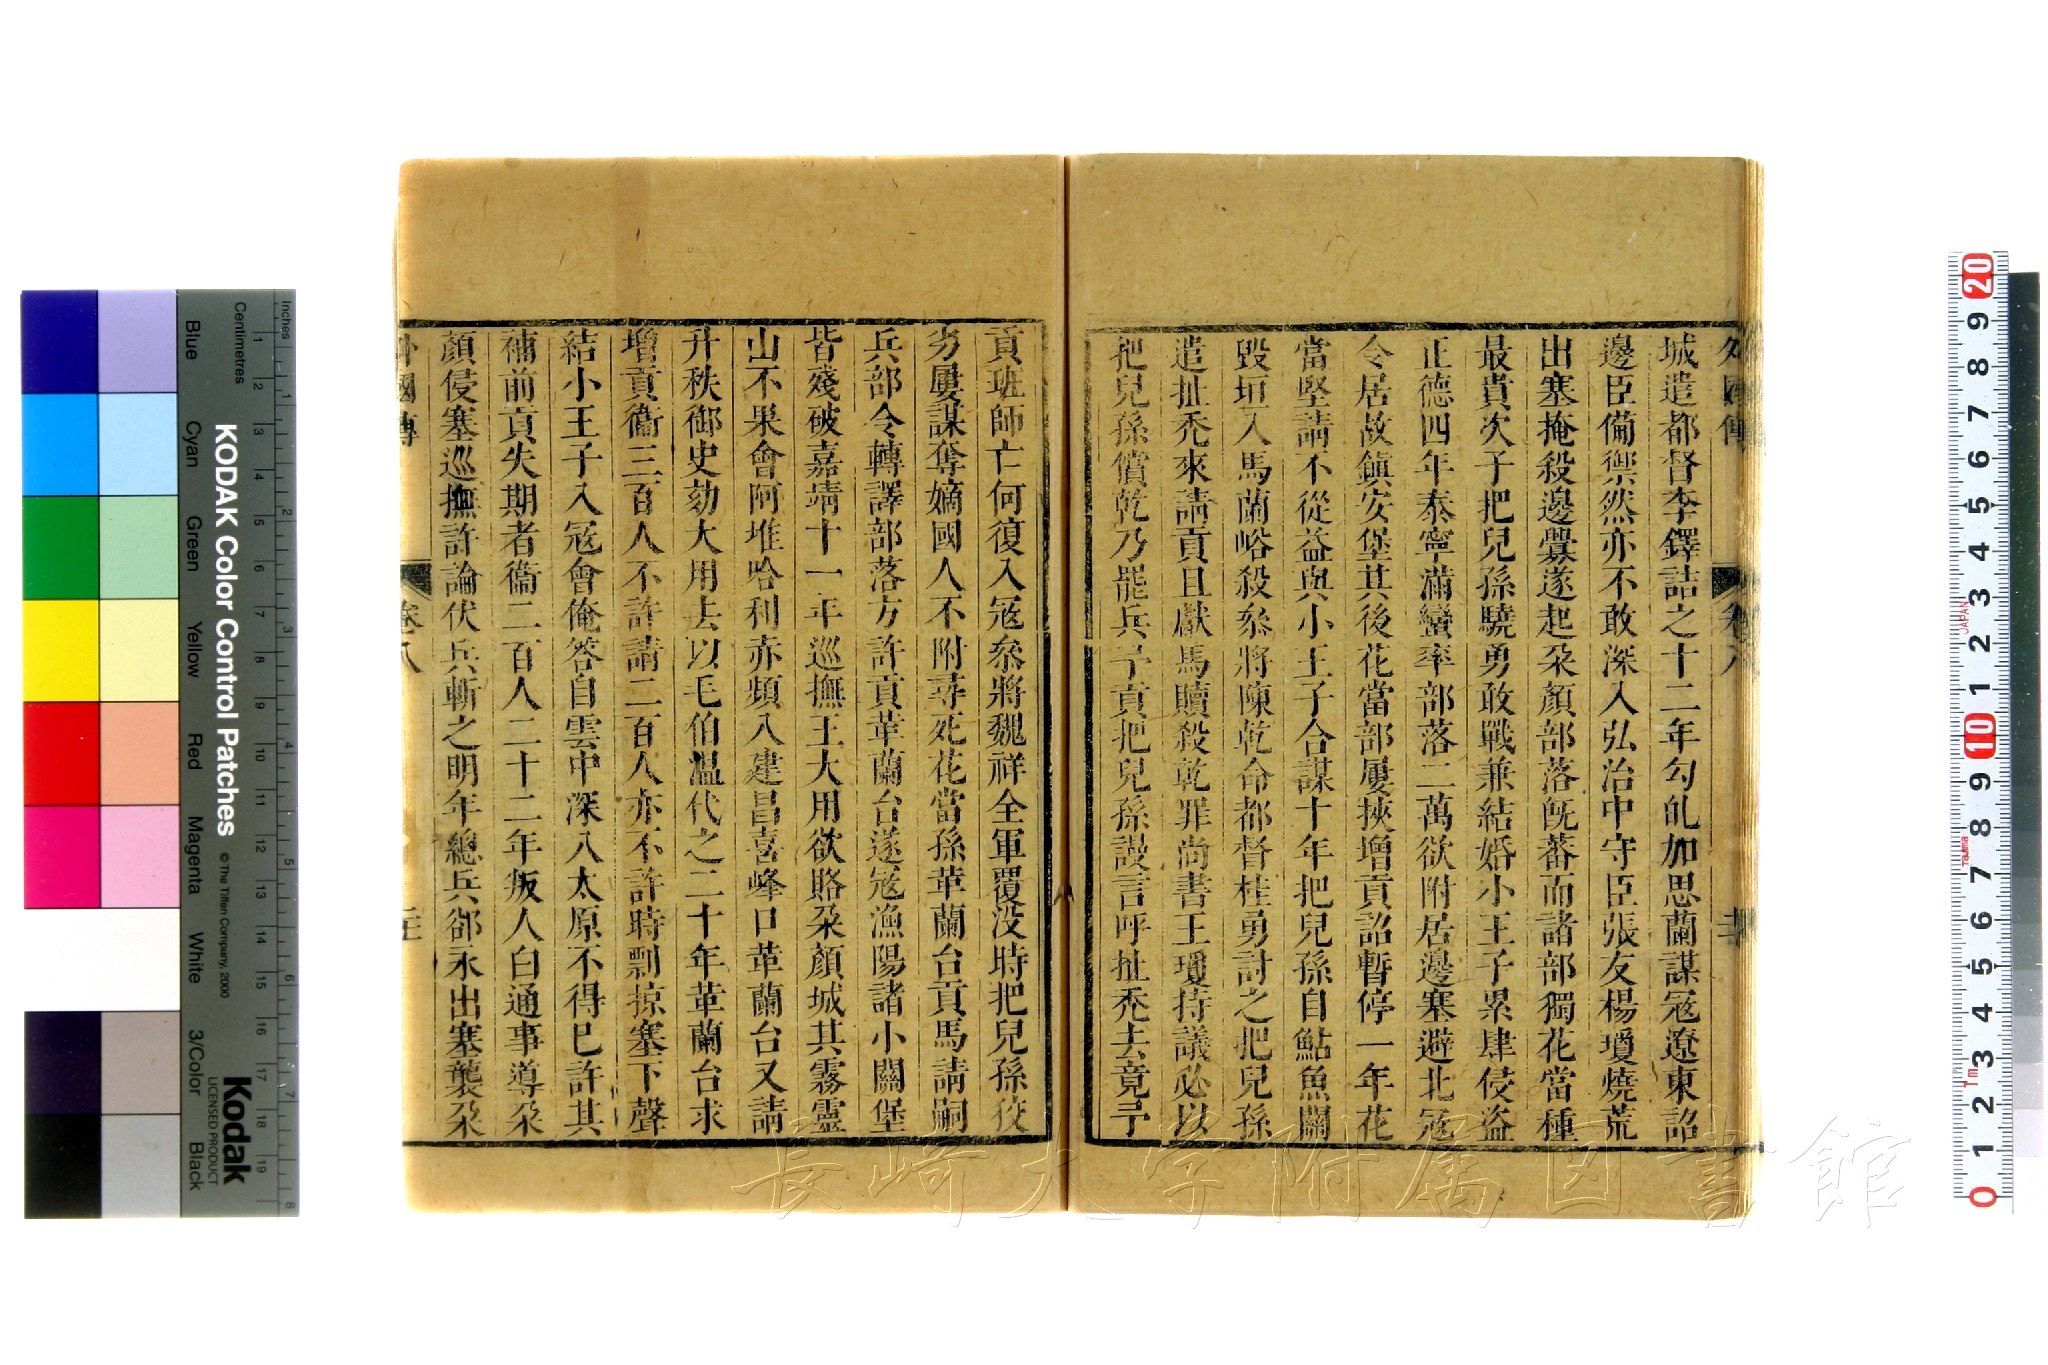 外國傳 卷八
城遣都督李鐸詰之十二年勾虬加思蘭謀寇遼東詔
邊臣備禦然亦不敢深入弘治中守臣張友楊瓊燒荒
出塞掩殺邊釁遂起朶顏部落旣蕃而諸部獨花當種
最貴次子把兒孫驍勇敢戰兼結婚小王子累肆侵盜
正德四年泰寧滿蠻率部落二萬欲附居邊塞避北寇
令居故鎭安堡其後花當部屢挾增貢詔暫停一年花
當堅請不從益與小王子合謀十年把兒孫自鮎魚關
毀垣入馬蘭峪殺叅將陳乾命都督桂勇討之把兒孫
遣扯禿來請貢且獻馬贖殺乾罪尚書王瓊持議必以
把兒孫償乾乃罷兵予貢把兒孫謾言呼扯禿去竟予
貢班師亡何復入寇叅將魏祥全軍覆没時把兒孫狡
劣屢謀奪嫡國人不附尋死花當孫革蘭台貢馬請嗣
兵部令轉譯部落方許貢革蘭台遂寇漁陽諸小關堡
皆殘破嘉靖十一年巡撫王大用欲賂朶顏城其霧靈
山不果會阿堆哈利赤頻入建昌喜峰口革蘭台又請
升秩御史劾大用去以毛伯溫代之二十年革蘭台求
增貢衞三百人不許請二百人亦不許時剽掠塞下聲
結小王子入寇會俺答自雲中深入太原不得已許其
補前貢失期者衞二百人二十二年叛人白通事導朶
顏侵塞巡撫許論伏兵斬之明年總兵郤永出塞襲朶
外國傳 卷八
Inches
Centimetres
KODAK Color Control Patches
© The Tiffen Company, 2000
Kodak
LICENSED PRODUCT
Blue Cyan Green Yellow Red Magenta White 3/Color Black
JAPAN
長崎大学附属図書館